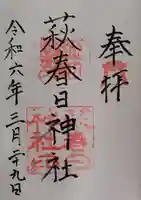 奉拝
萩春日神社
令和六年三月二十九日